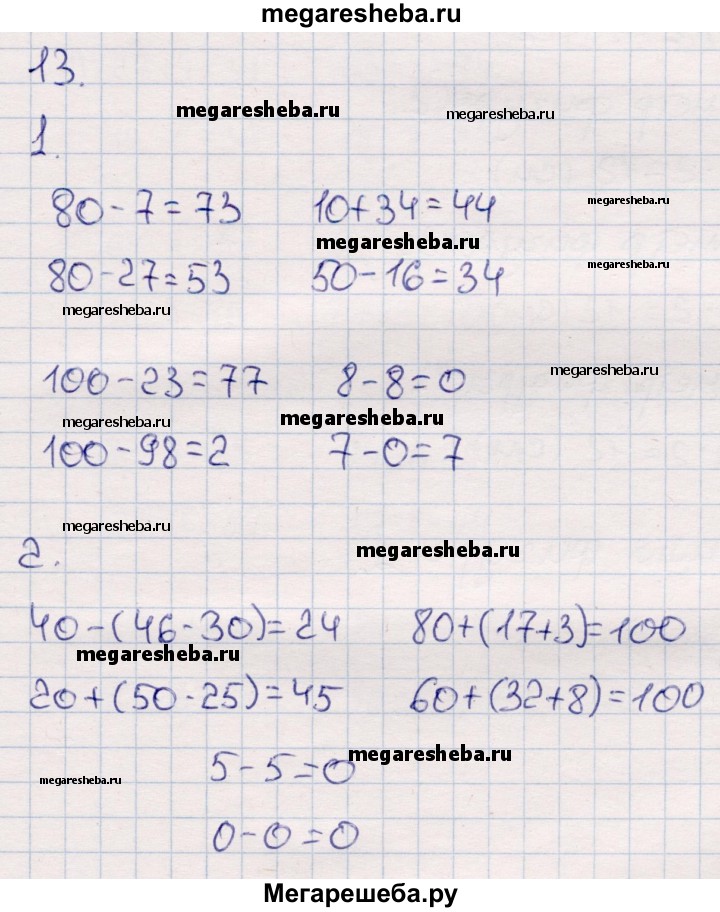 megaresheba.ru
13.
megaresheba.ru megaresheba.ru
1.
80-7=73 10+34=44 megaresheba.ru
megaresheba.ru
80-27=53 50-16=34 megaresheba.ru
megaresheba.ru
100-23=77 8-8=0 megaresheba.ru
megaresheba.ru megaresheba.ru
100-98=2 7-0=7
megaresheba.ru
2. megaresheba.ru
40-(46-30)=24 80+(17+3)=100
megaresheba.ru
20+(50-25)=45 60+(32+8)=100
megaresheba.ru
5-5=0
megaresheba.ru
0-0=0
Мегарешеба.ру